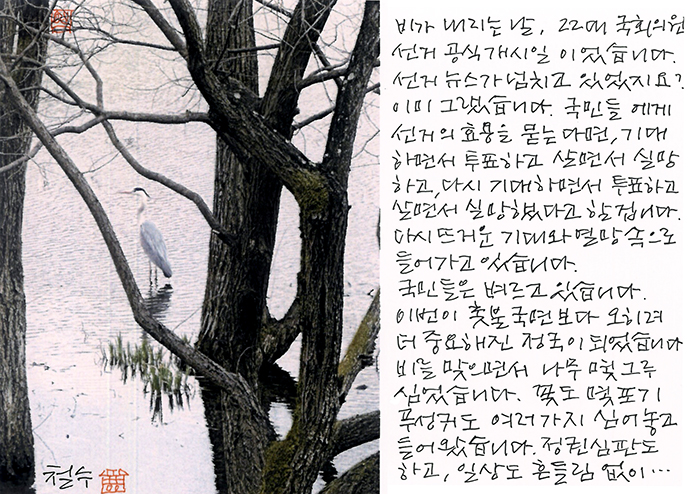 비가 내리는 날, 22대 국회의원
선거 공식개시일 이었습니다.
선거 뉴스가 넘치고 있었지요?
이미 그랬습니다. 국민들 에게
선거의 효용을 묻는다면, 기대
하면서 투표하고 살면서 실망
하고, 다시 기대하면서 투표하고
살면서 실망했다고 할겁니다.
다시 뜨거운 기대와 열망 속으로
들어가고 있습니다.
국민들은 벼르고 있습니다.
이번이 촛불국면보다 오히려
더 중요해진 정국이 되었습니다
비를 맞으면서 나무 몇 그루
심었습니다. 꽃도 몇 포기
푸성귀도 여러가지 심어 놓고
들어왔습니다. 정권심판도
하고, 일상도 흔들림 없이…
철수